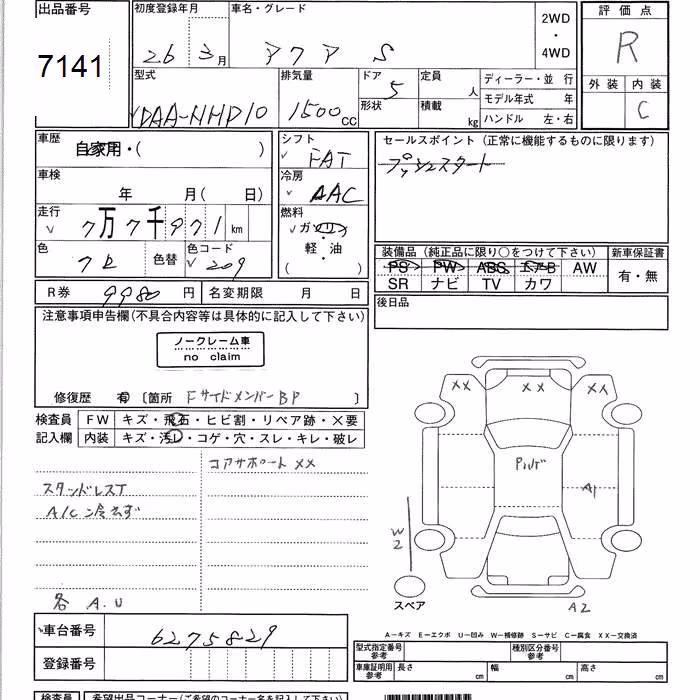 出品番号
7141
初度登録年月
26 3月
車名・グレード
アクア S
2WD
・
4WD
評価点
R
外装 内装
C
型式
DAA-NHP10
排気量
1500cc
ドア
5
形状
定員
人
積載
kg
ディーラー・並 行
モデル年式 年
ハンドル 左・右
車歴
自家用・( )
車検
年 月( 日)
走行
7万7千971km
色
クロ
色替
色コード
209
シフト
FAT
冷房
AAC
燃料
ガソリン
・
軽・油
( )
セールスポイント (正常に機能するものに限ります)
プッシュスタート
装備品 (純正品に限り○をつけて下さい)
PS PW ABS エアB AW
SR ナビ TV カワ
新車保証書
有・無
後日品
R券 9980円
名変期限 月 日
注意事項申告欄(不具合内容等は具体的に記入して下さい)
ノークレーム車
no claim
修復歴 有 〔箇所 FサイドメンバーBP 〕
検査員
記入欄
FW キズ・飛石・ヒビ割・リペア跡・X要
内装 キズ・汚レ・コゲ・穴・スレ・キレ・破レ
コアサポートXX
スタッドレスT
A/C冷えず
各 A.U
XX XX XX
A1
W2
スペア
A2
A-キズ E-エクボ U-凹み W-補修跡 S-サビ C-腐食 XX-交換済
車台番号 6275829
登録番号
型式指定番号
参考
種別区分番号
参考
車庫証明用
参考
長さ cm
幅 cm
高さ cm
検査員
希望出品コーナー(ご希望のコーナー名を記入して下さい)